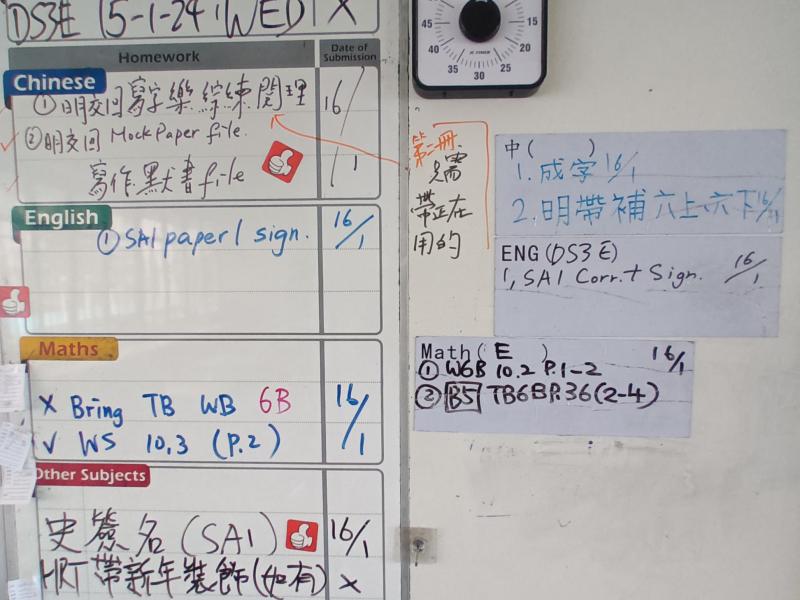 DS3E 15-1-24 (WED) X
Homework
Date of Submission
Chinese
① 明交回寫字樂綜練閱理 16/1
② 明交回 Mock Paper file.
寫作.默書file 1/1
English
① SA1 paper 1 sign. 16/1
Maths
X Bring TB WB 6B 16/1
√ WS 10.3 (P.2)
Other Subjects
史簽名(SA1) 16/1
HRT帶新年裝飾(如有) X
45 15
40 20
35 30 25
第二冊
只需
帶正在
用的
中( )
1. 成字 16/1
2. 明帶補六上、六下 16/1
ENG(DS3E)
1, SA1 Corr. + Sign. 16/1
Math( E ) 16/1
① W6B 10.2 P.1-2
② B5 TB6B P.36(2-4)